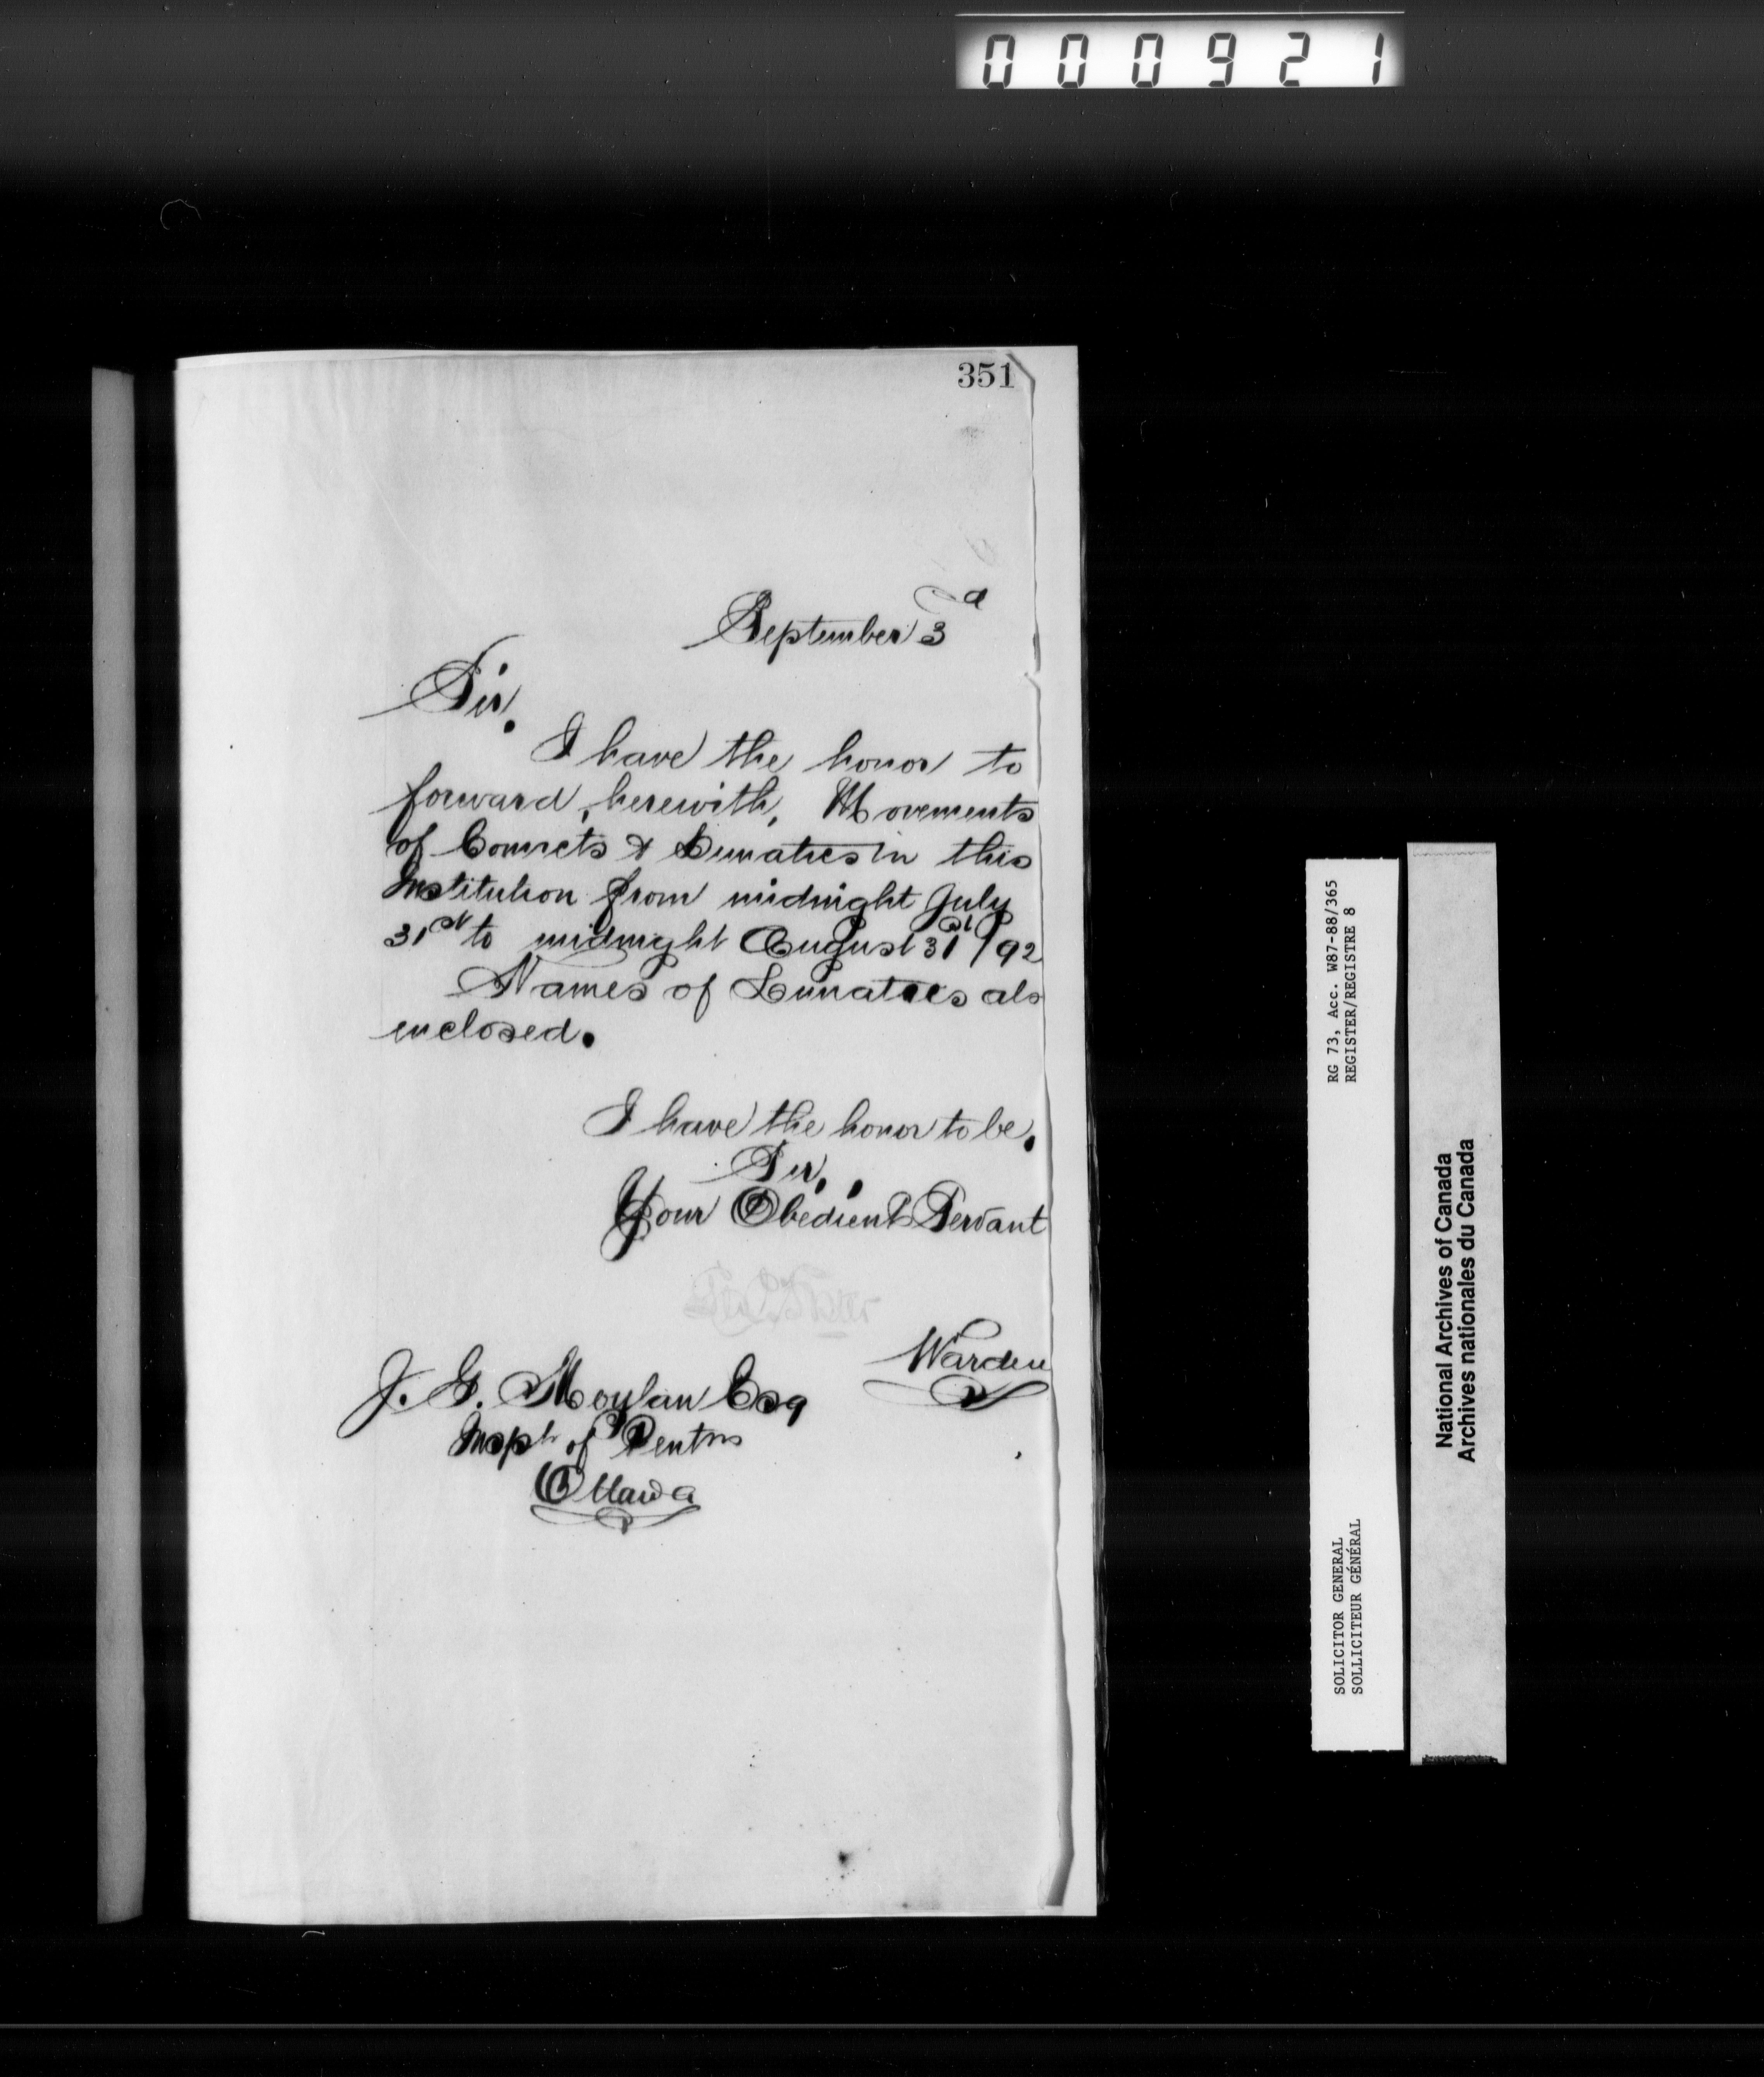 000921
351
September 3d
Sir.
I have the honor to
forward, herewith, Movements
of Convicts & Lunatics in this
Institution from midnight July
31st to midnight August 31st/92
Names of Lunatics als
enclosed.
I have the honor to be.
Sir.
Your Obedient Servant
Warden
J. G. Moylan Esq
Inspr of Pentns
Ottawa
RG 73, Acc. W87-88/365
REGISTER/REGISTRE 8
SOLICITOR GENERAL
SOLLICITEUR GÉNÉRAL
National Archives of Canada
Archives nationales du Canada